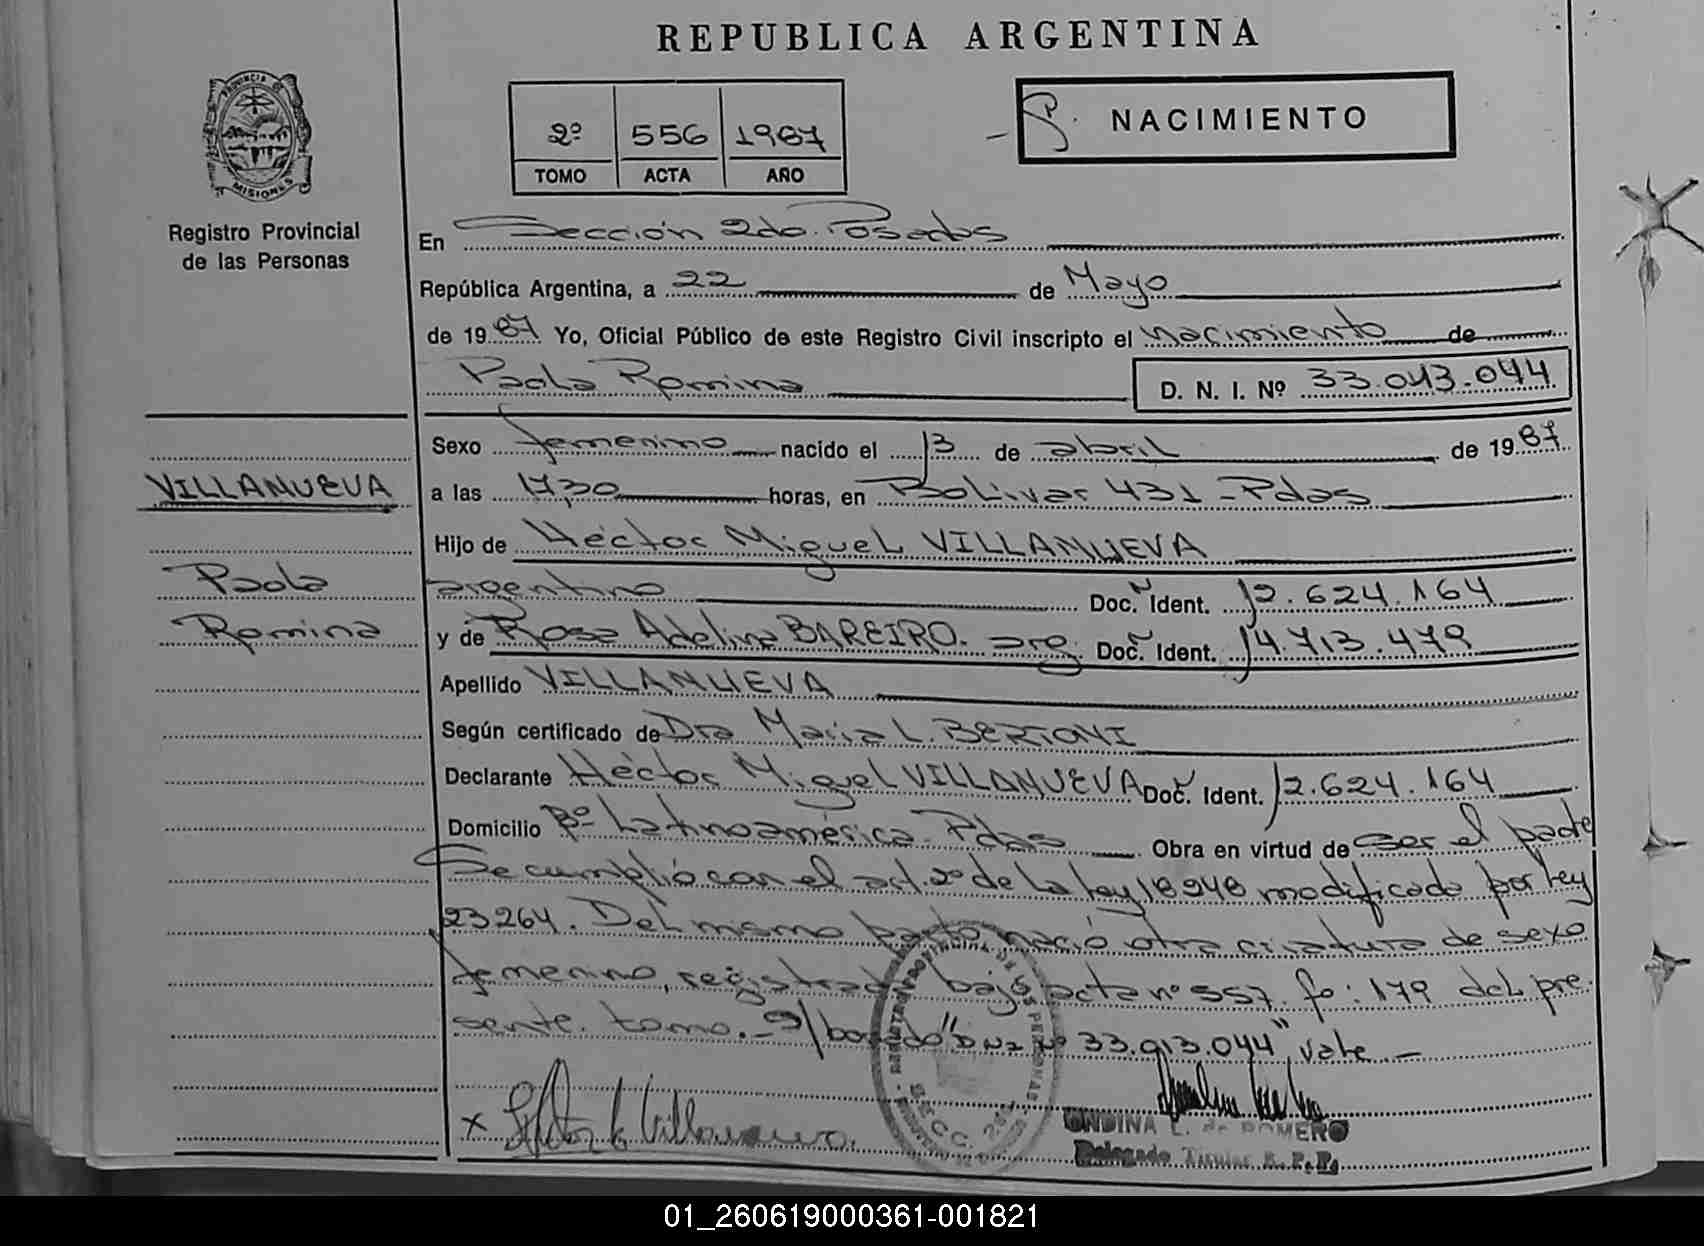 REPUBLICA ARGENTINA
PROVINCIA DE MISIONES
Registro Provincial
de las Personas
2º 556 1987
TOMO ACTA AÑO
NACIMIENTO
En Sección 2do. Posadas
República Argentina, a 22 de Mayo
de 1987 Yo, Oficial Público de este Registro Civil inscripto el nacimiento de
Paola Romina D. N. I. Nº 33.013.044
Sexo femenino nacido el 13 de abril de 1987
VILLANUEVA
a las 17,30 horas, en Bolivar 431 - Pdas
Hijo de Héctor Miguel VILLANUEVA
Paola
argentino Doc. Ident. 12.624.164
Romina
y de Rosa Adelina BAREIRO. arg. Doc. Ident. 14.713.479
Apellido VILLANUEVA
Según certificado de Dra Maria L. BERTONI
Declarante Héctor Miguel VILLANUEVA Doc. Ident. 12.624.164
Domicilio Bº Latinoamérica - Pdas Obra en virtud de ser el padre
Se cumplió con el art. 2º de la Ley 18248 modificado por Ley
23264. Del mismo parto nació otra criatura de sexo
femenino, registrada bajo acta nº 557. fo: 179 del pre-
sente tomo. - S/borrado "DNI Nº 33.013.044", vale -
x Villanueva
ONDINA L. de ROMERO
Delegado Titular R. P. P.
01_260619000361-001821